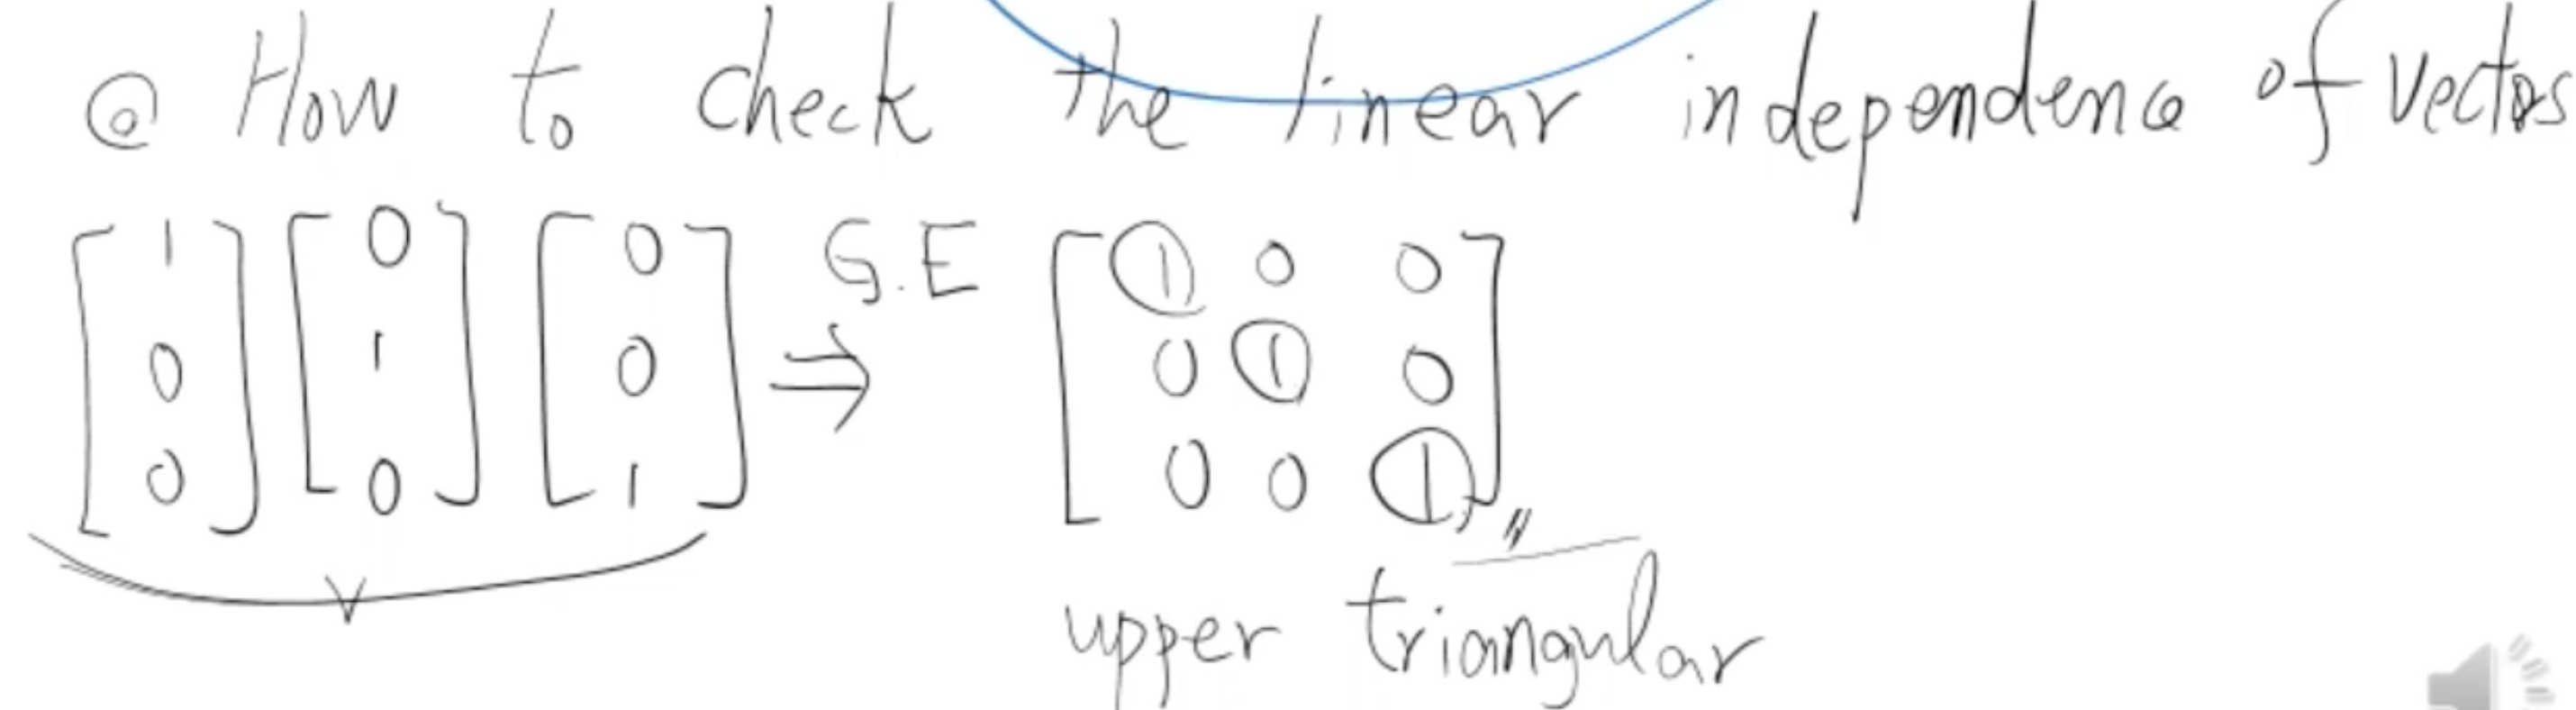 @ How to check the linear independence of vectors
[1 0 0] [0 1 0] [0 0 1] G.E ⇒ [1 0 0
0 1 0
0 0 1]
upper triangular